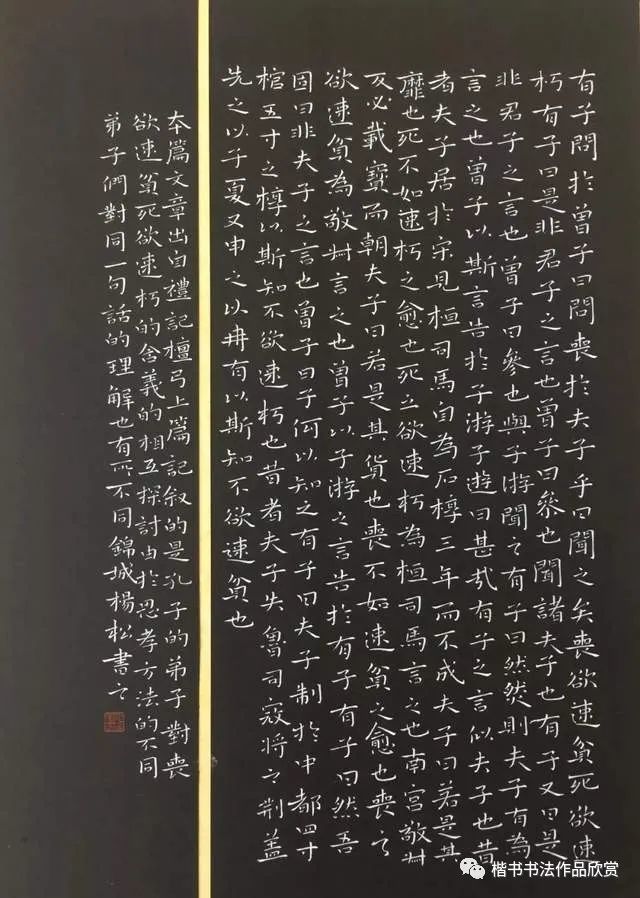 有子問於曾子曰問喪於夫子乎曰聞之矣喪欲速貧死欲速
朽有子曰是非君子之言也曾子曰參也聞諸夫子也有子又曰是
非君子之言也曾子曰參也與子游聞之有子曰然然則夫子有為
言之也曾子以斯言告於子游子遊曰甚哉有子之言似夫子也昔
者夫子居於宋見桓司馬自為石椁三年而不成夫子曰若是其
靡也死不如速朽之愈也死之欲速朽為桓司馬言之也南宮敬叔
反必載寶而朝夫子曰若是其貨也喪不如速貧之愈也喪之
欲速貧為敬叔言之也曾子以子游之言告於有子有子曰然吾
固曰非夫子之言也曾子曰子何以知之有子曰夫子制於中都四寸
棺五寸之椁以斯知不欲速朽也昔者夫子失魯司寇將之荊蓋
先之以子夏又申之以冉有以斯知不欲速貧也
本篇文章出自禮記檀弓上篇記叙的是孔子的弟子對喪
欲速貧死欲速朽的含義的相互探討由於思考方法的不同
弟子們對同一句話的理解也有所不同錦城楊松書之
楷书书法作品欣赏